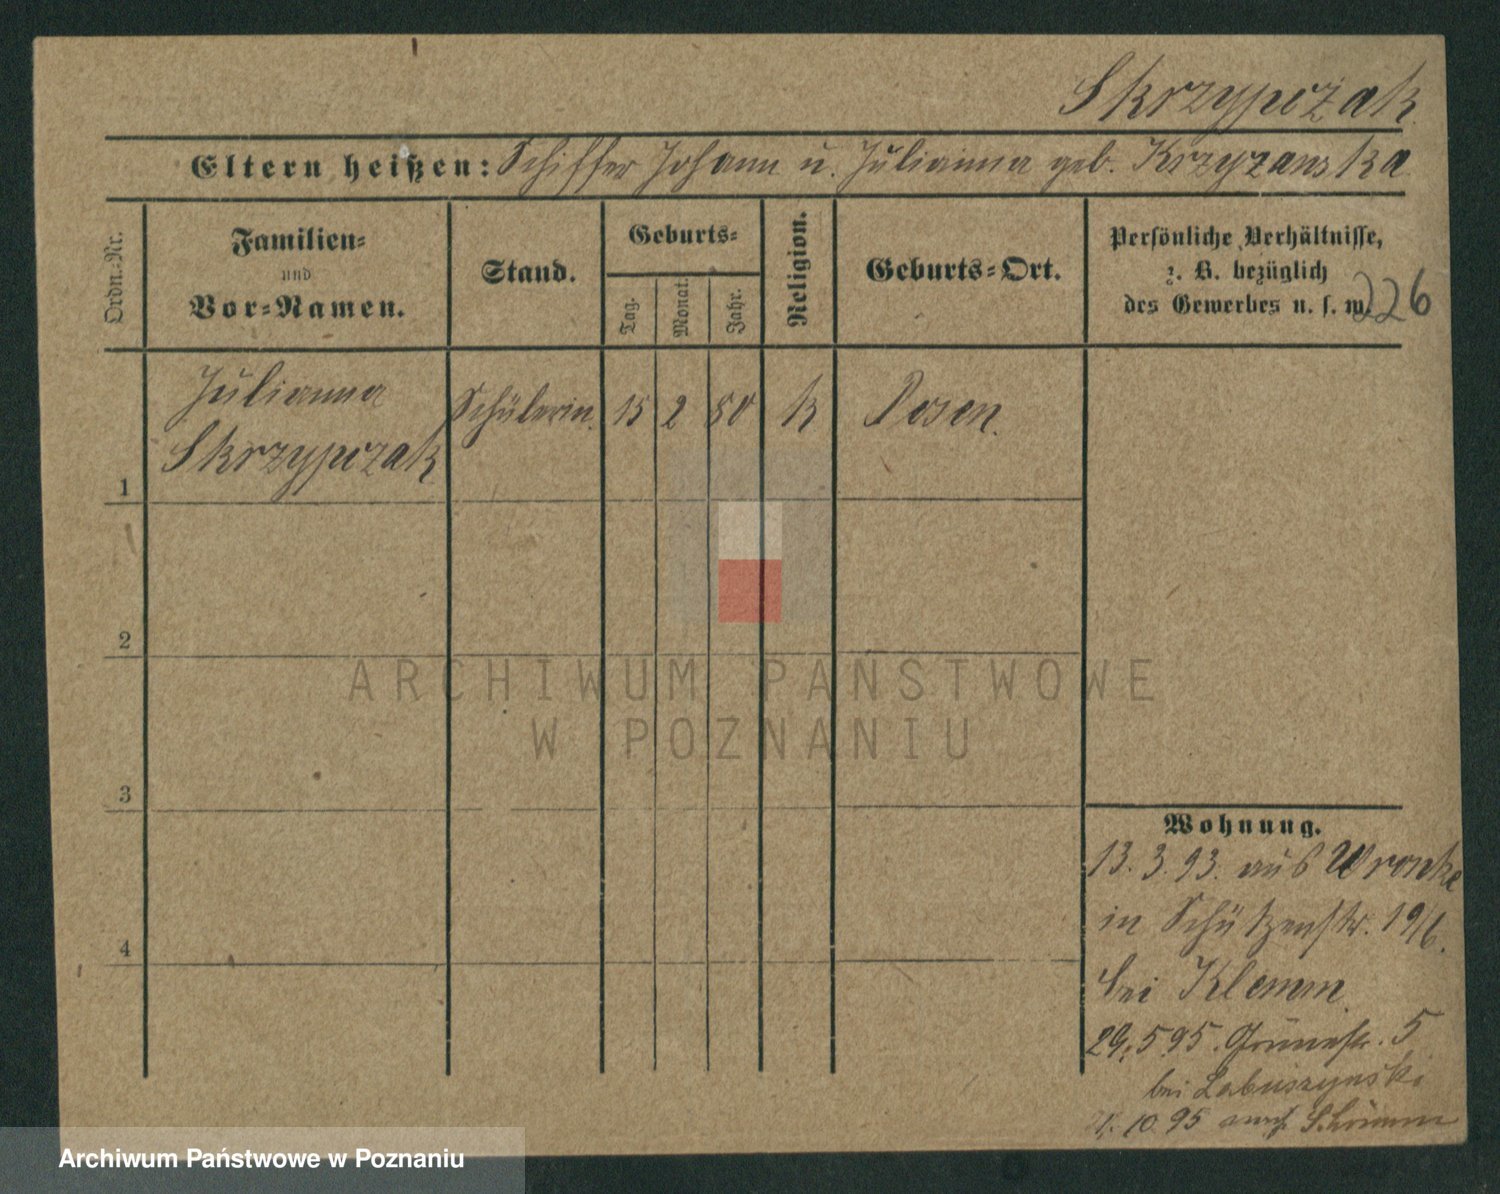 Skrzypczak
Eltern heißen: Schiffer Johann u. Julianna geb. Krzyzanska
Ordn.-Nr.
Familien-
und
Vor-Namen.
Stand.
Geburts-
Tag.
Monat.
Jahr.
Religion.
Geburts-Ort.
Persönliche Verhältnisse,
z. B. bezüglich
des Gewerbes u. s. w.
226
Julianna
Skrzypczak
Schülerin.
15 2 80 k Posen.
1
2
3
4
ARCHIWUM PAŃSTWOWE
W POZNANIU
Wohnung.
13. 3. 93. aus Wronke
in Schützenstr. 19/6.
bei Klemm
29. 5 95. Grünestr. 5
bei Labuszynski
10. 95
Archiwum Państwowe w Poznaniu